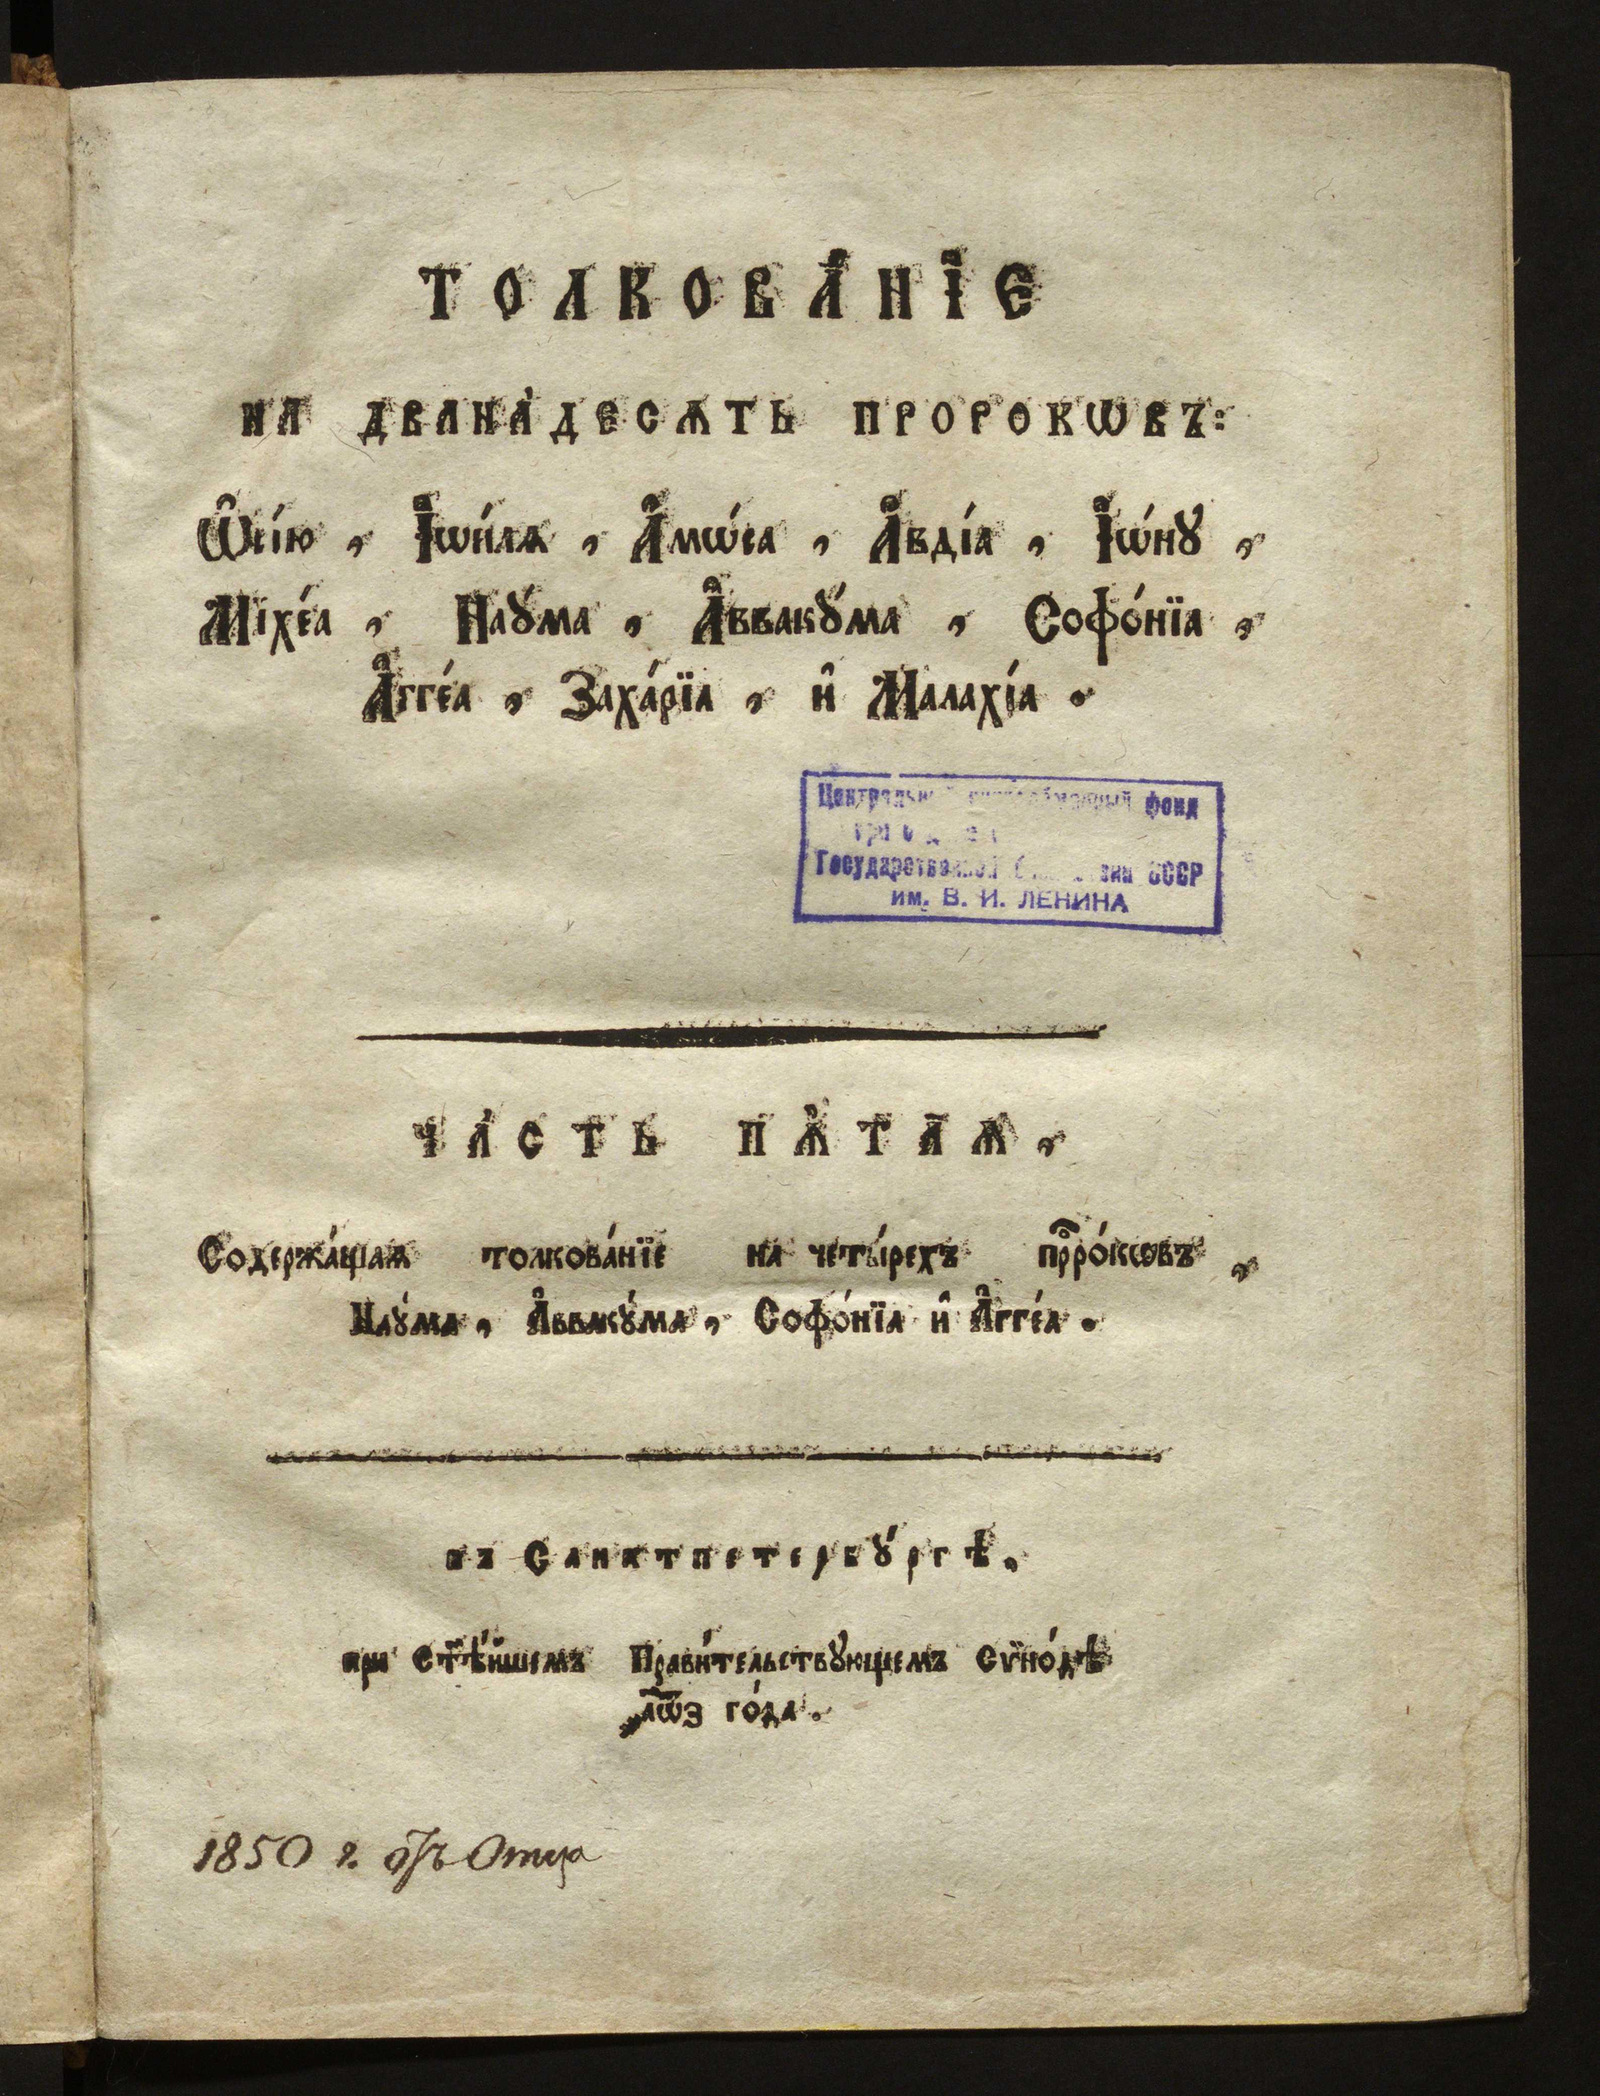 ТОЛКОВА́НІЕ
НА ДВАНА́ДЕСѦТЬ ПРОРОКѠВЪ:
Ѡ҆сі́ю, І҆ѡи́лѧ, А҆мѡ́са, А҆вді́а, І҆ѡ́нꙋ,
Міхе́а, Наꙋ́ма, А҆ввакꙋ́ма, Софо́нїа,
А҆гге́а, Заха́рїа, и҆ Малахі́а.
Центральный книгообменный фонд
при
Государственной библиотеки СССР
им. В. И. ЛЕНИНА
ЧА́СТЬ ПѦ́ТАѦ,
Содержа́щаѧ толкова́нїе на четы́рехъ прⷪ҇ро́кѡвъ,
Наꙋ́ма, А҆ввакꙋ́ма, Софо́нїа и҆ А҆гге́а.
въ Санктпетербꙋ́ргѣ,
при Ст҃ѣ́йшемъ Прави́тельствꙋющемъ Сѷно́дѣ
҂аѿз го́да.
1850 г. отъ Отца